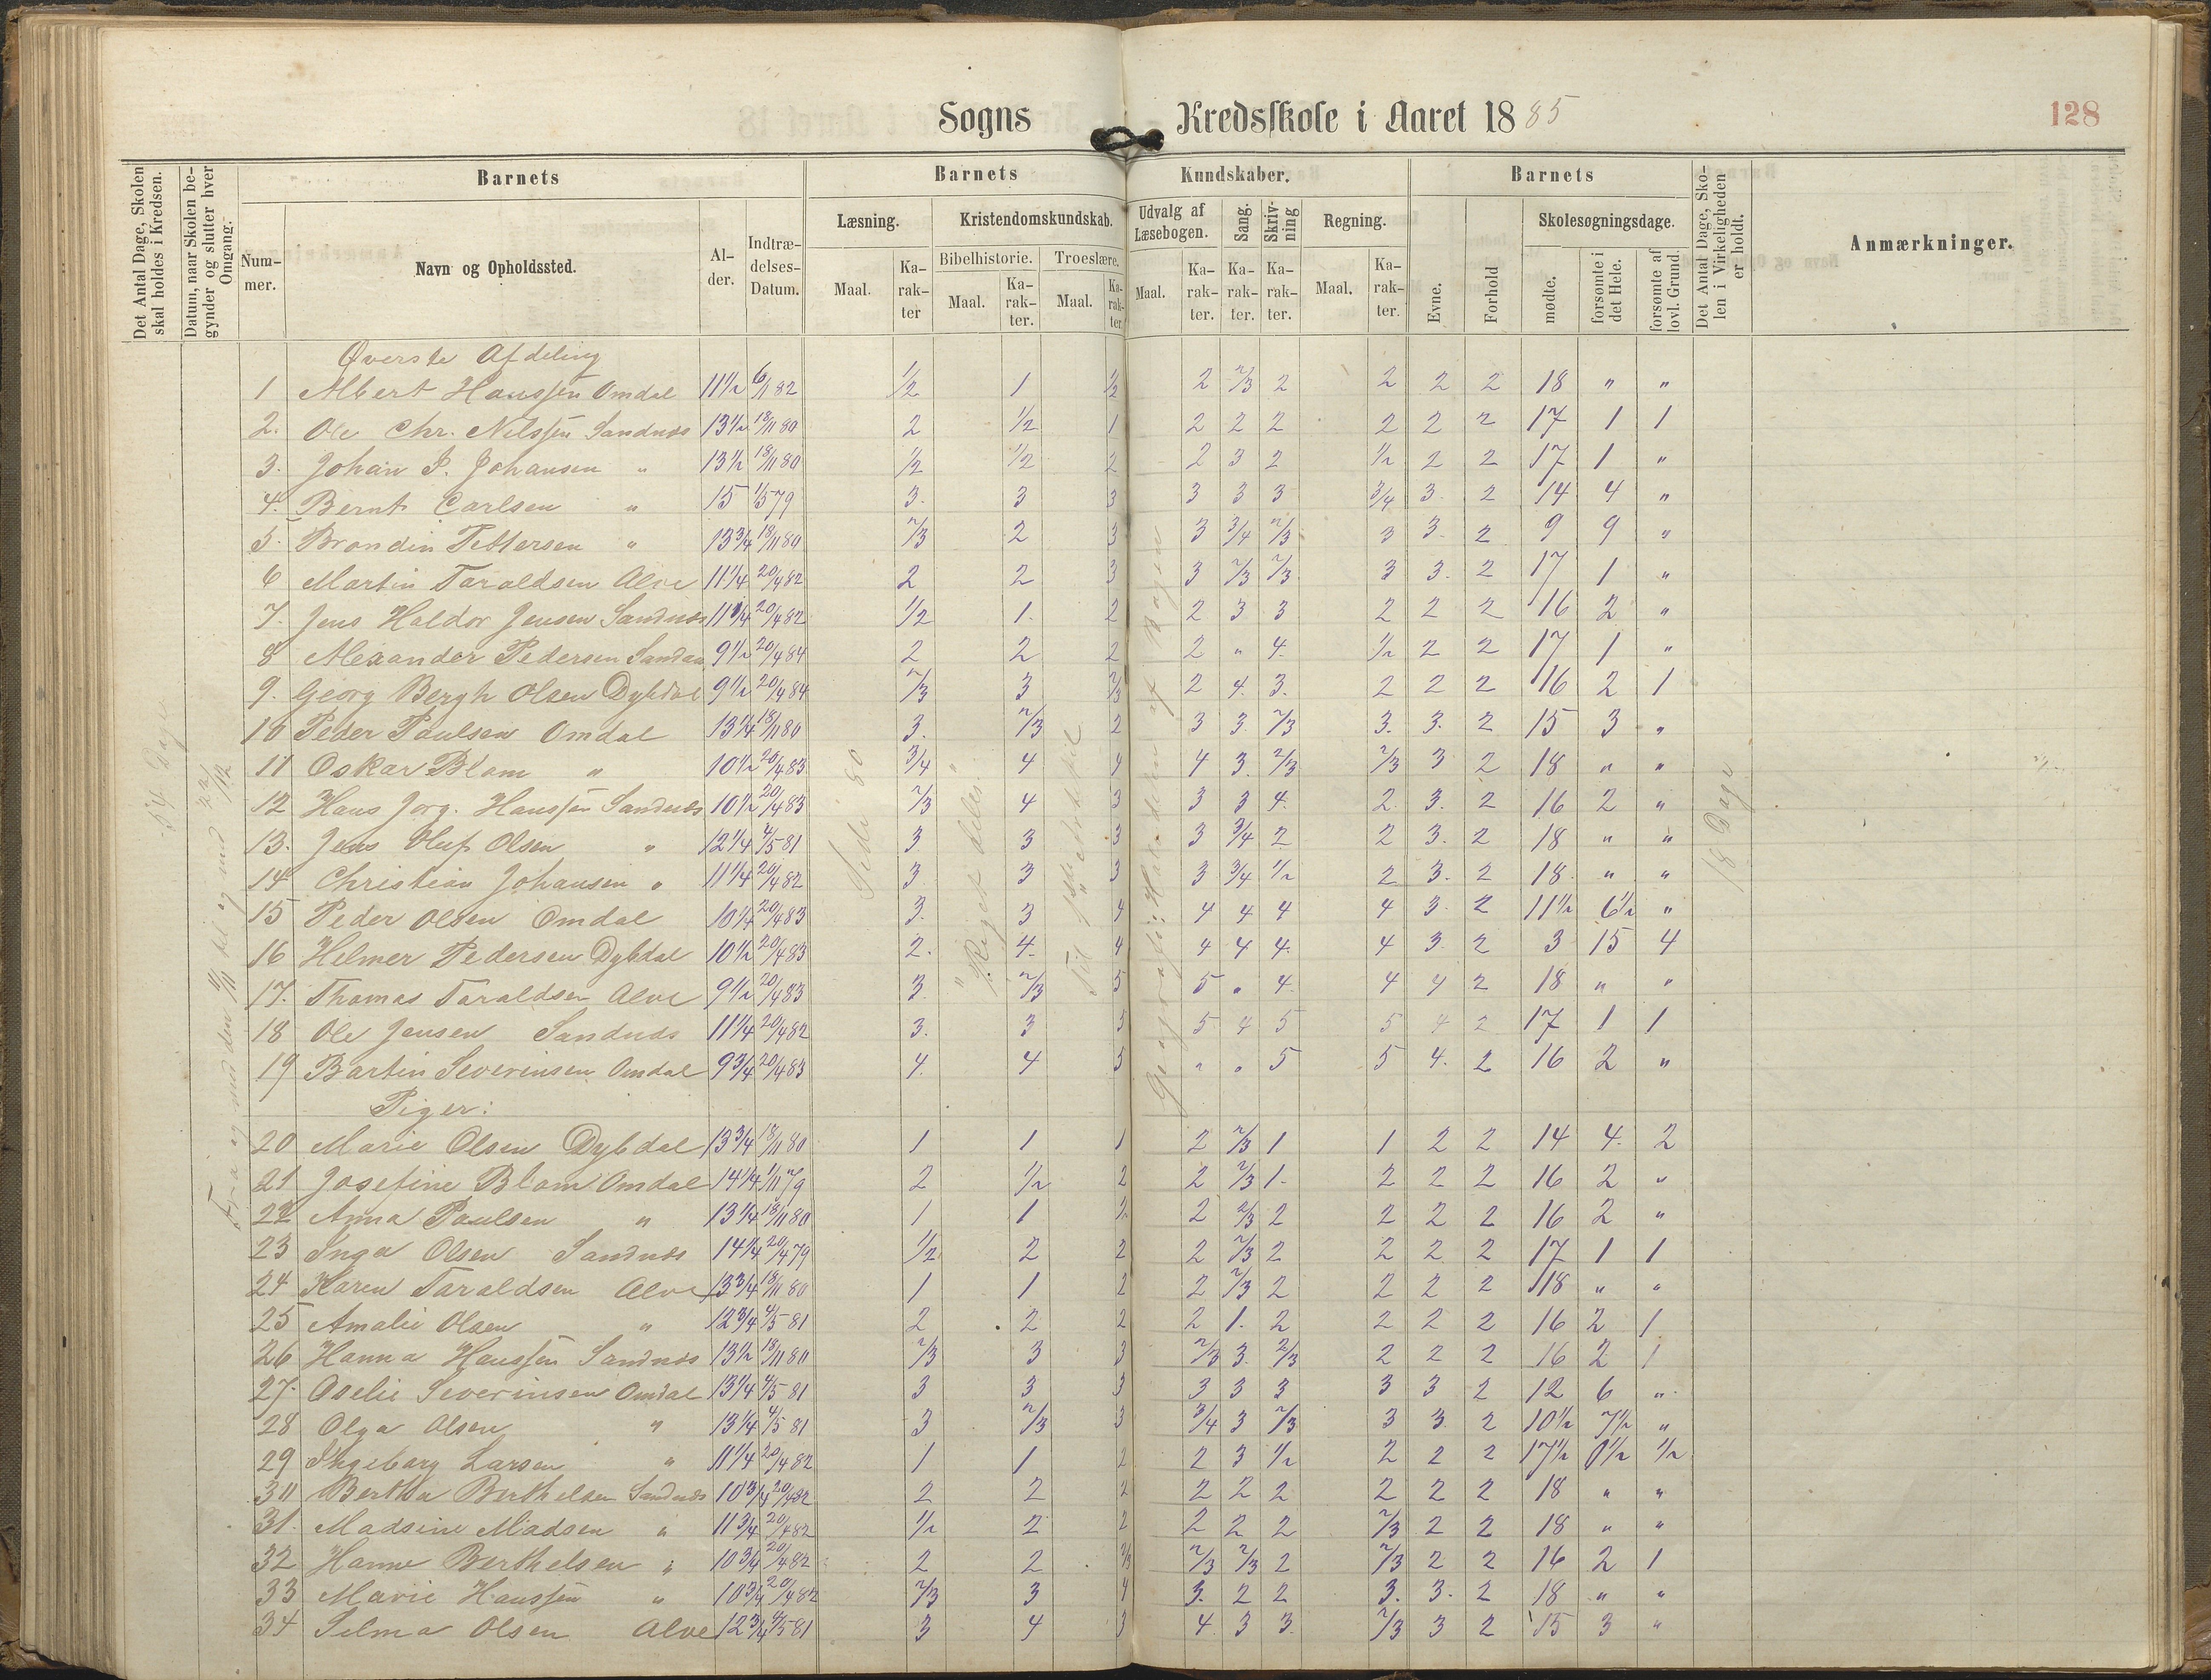 Sogns Kredsskole i Aaret 1885
128
Det Antal Dage, Skolen skal holdes i Kredsen.
Datum, naar Skolen begynder og slutter hver Omgang.
Barnets
Barnets Kundskaber.
Barnets
Det Antal Dage, Skolen i Virkeligheden er holdt.
Anmærkninger.
Nummer.
Navn og Opholdssted.
Alder.
Indtrædelses-Datum.
Læsning.
Kristendomskundskab.
Udvalg af Læsebogen.
Sang.
Skrivning
Regning.
Evne.
Forhold
Skolesøgningsdage.
Bibelhistorie.
Troeslære.
Maal.
Karakter
Maal.
Karakter.
Maal.
Karakter
Maal.
Karakter.
Karakter.
Karakter.
Maal.
Karakter.
mødte.
forsømte i det Hele.
forsømte af lovl. Grund.
Øverste Afdeling
1 Albert Hanssen Omdal 11½ 6/11 82 ½ 1 ½ 2 2/3 2 2 2 2 18 " "
2. Ole Chr. Nilssen Sandnæs 13½ 18/11 80 2 ½ 1 2 2 2 2 2 2 17 1 1
3. Johan P. Johansen " 13½ 18/11 80 ½ ½ 2 2 3 2 ½ 2 2 17 1 "
4. Bernt Carlsen " 15 1/5 79 3. 3 3 3 3 3 3/4 3. 2 14 4 "
5. Brondin Pettersen " 13¾ 18/11 80 2/3 2 3 3 3/4 2/3 3 3. 2 9 9 "
6 Martin Taraldsen Alve 11¼ 20/4 82 2 2 3 3 2/3 2/3 3 3. 2 17 1 "
7. Jens Haldor Jensen Sandnæs 11¼ 20/4 82 ½ 1. 2 2 3 3 2 2 2 16 2 "
8 Alexander Pedersen Sandnæs 9½ 20/4 84 2 2 2 2 " 4. ½ 2 2 17 1 "
9. Georg Bergh Olsen Dybdal 9½ 20/4 84 2/3 3 2/3 2 4. 3. 2 2 2 16 2 1
10 Peder Paulsen Omdal 13¼ 18/11 80 3. 2/3 2 3 3 2/3 3. 3. 2 15 3 "
11 Oskar Blom " 10½ 20/4 83 3/4 4 4 4 3. 2/3 2/3 3 2 18 " "
12 Hans Jørg. Hanssen Sandnæs 10½ 20/4 83 2/3 4 3 3 3 4. 2. 3. 2 16 2 "
13. Jens Oluf Olsen " 12¼ 4/5 81 3 3 3 3 3/4 2 2 3. 2 18 " "
14 Christian Johansen " 11¼ 20/4 82 3 3 3 3 3/4 ½ 2 3. 2 18. " "
15 Peder Olsen Omdal 10¼ 20/4 83 3. 3 4 4 4 4 4 3. 2 11½ 6½ "
16 Helmer Pedersen Dybdal 10½ 20/4 83 2. 4. 4 4 4 4. 4 3. 2 3 15 4
17. Thomas Taraldsen Alve 9½ 20/4 83 3. 2/3 5 5 " 4. 4 4 2 18 " "
18 Ole Jensen Sandnæs 11¼ 20/4 82 3. 3 5 5 4 5 5 4 2 17 1 1
19 Bartin Severinsen Omdal 9¾ 20/4 83 4. 4 5 " " 5 5 4. 2 16 2 "
Piger:
20 Marie Olsen Dybdal 13¾ 18/11 80 1 1 1 2 2/3 1 1 2 2 14 4. 2
21 Josefine Blom Omdal 14¼ 1/11 79 2 ½ 2 2 2/3 1. 2 2 2 16 2 "
22 Anna Paulsen " 13¼ 18/11 80 1 1 ½ 2 2/3 2 2 2 2 16 2 "
23 Inga Olsen Sandnæs 14¼ 20/4 79 ½ 2 2 2 2/3 2 2 2 2 17 1 1
24 Karen Taraldsen Alve 13¾ 18/11 80 1 1 2 2 2/3 2 2 2 2 18 " "
25 Amalie Olsen " 12¾ 4/5 81 2 2 2 2 1. 2 2 2 2 16 2 1
26 Hanna Hanssen Sandnæs 13½ 18/11 80 2/3 3 3 2/3 3. 2/3 2 2 2 16 2 1
27. Oselie Severinsen Omdal 13¼ 4/5 81 3 3 3 3 3 3 3 3 2 12 6 "
28 Olga Olsen " 13¼ 4/5 81 3 2/3 3 3/4 3 2/3 3 3. 2 10½ 7½ "
29 Ingeborg Larsen " 11¼ 20/4 82 1 1 2 2 3 ½ 2 2 2 17½ 0½ ½
30 Bertha Berthelsen Sandnæs 10¾ 20/4 82 2 2 2 2 2 2 2 2 2 18 " "
31. Madsine Madsen " 11¾ 20/4 82 ½ 2 2 2 2 2 2/3 2 2 18 " "
32 Hanne Berthelsen " 10¾ 20/4 82 2 2 2/3 2/3 2/3 2 2/3 2 2 16 2 1
33 Marie Hanssen " 10¾ 20/4 82 2/3 3 4 3. 2 2 3. 3. 2 18 " "
34 Selma Olsen Alve 12¾ 4/5 81 3 4 3 4 3 3. 2/3 3 2 15 3 "
54 Dage
Fra og med den 4/11 til og med 22/12
Side 80
"Riget deles."
18 Dage